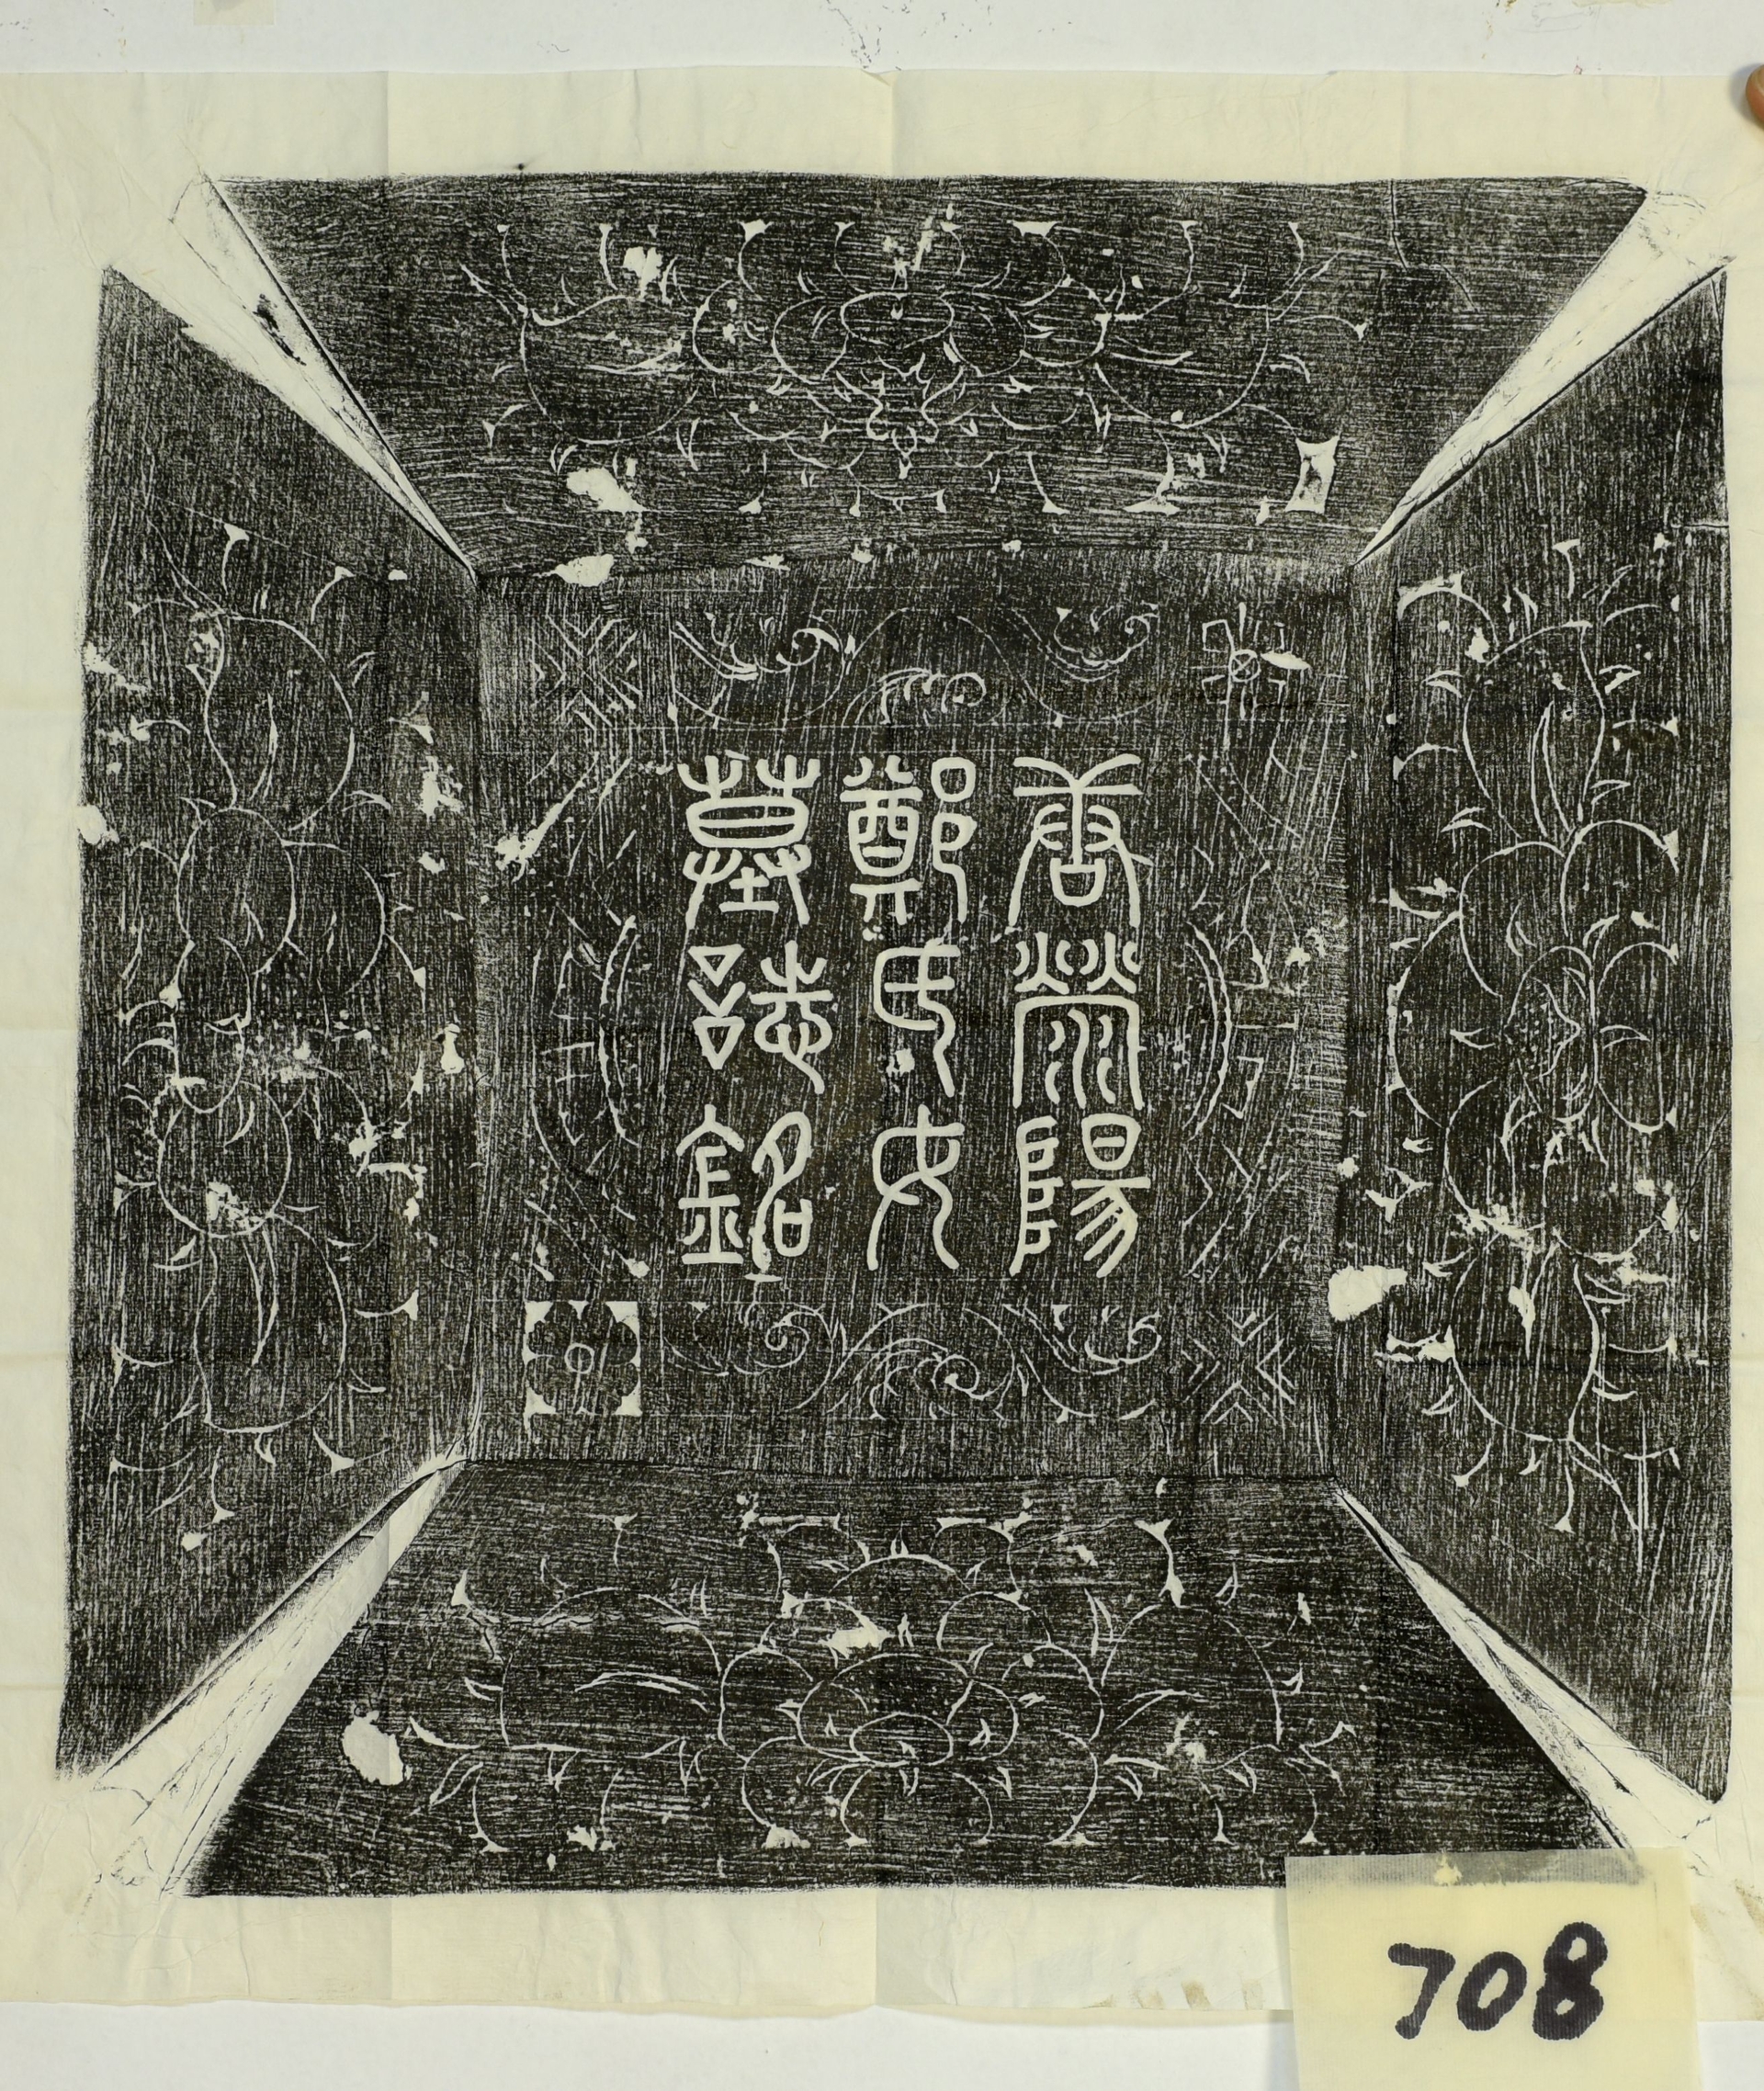 唐滎陽
鄭氏女
墓誌銘
708